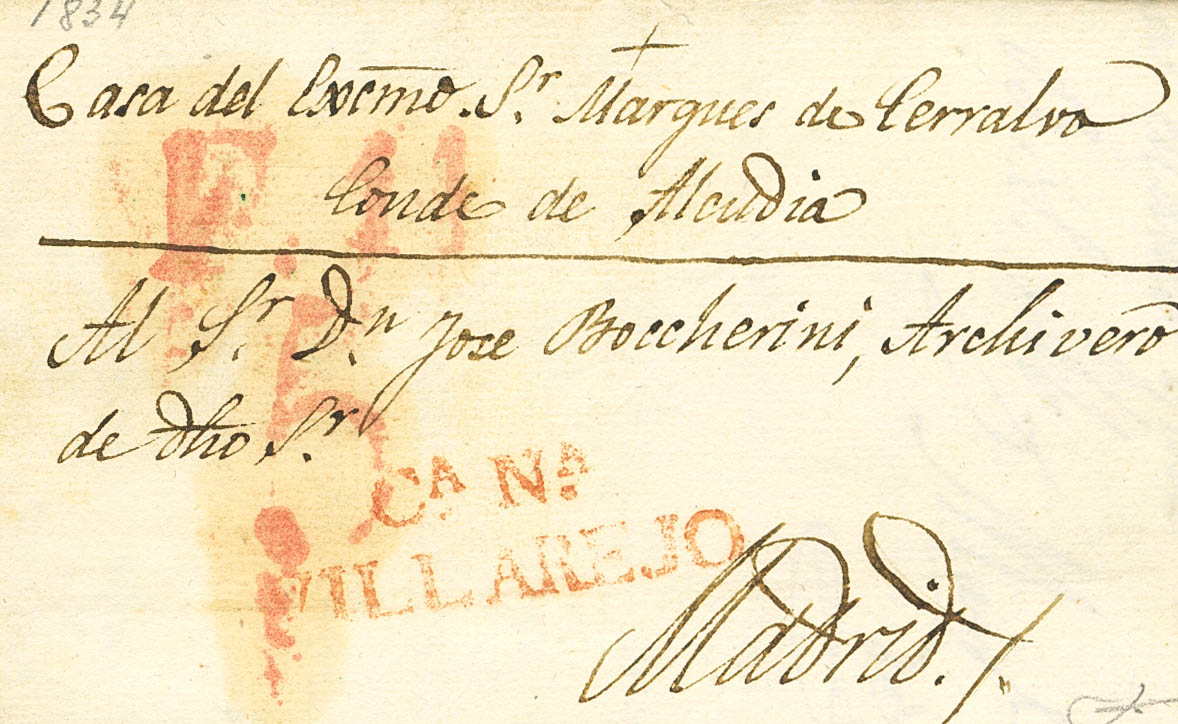 1834
Casa del Excmo. Sr. Marques de Cerralvo
Conde de Alcudia
Al Sr. Dn. Jose Boccherini, Archivero
de dho Sr.
Cª. Nª.
VILLAREJO
Madrid.